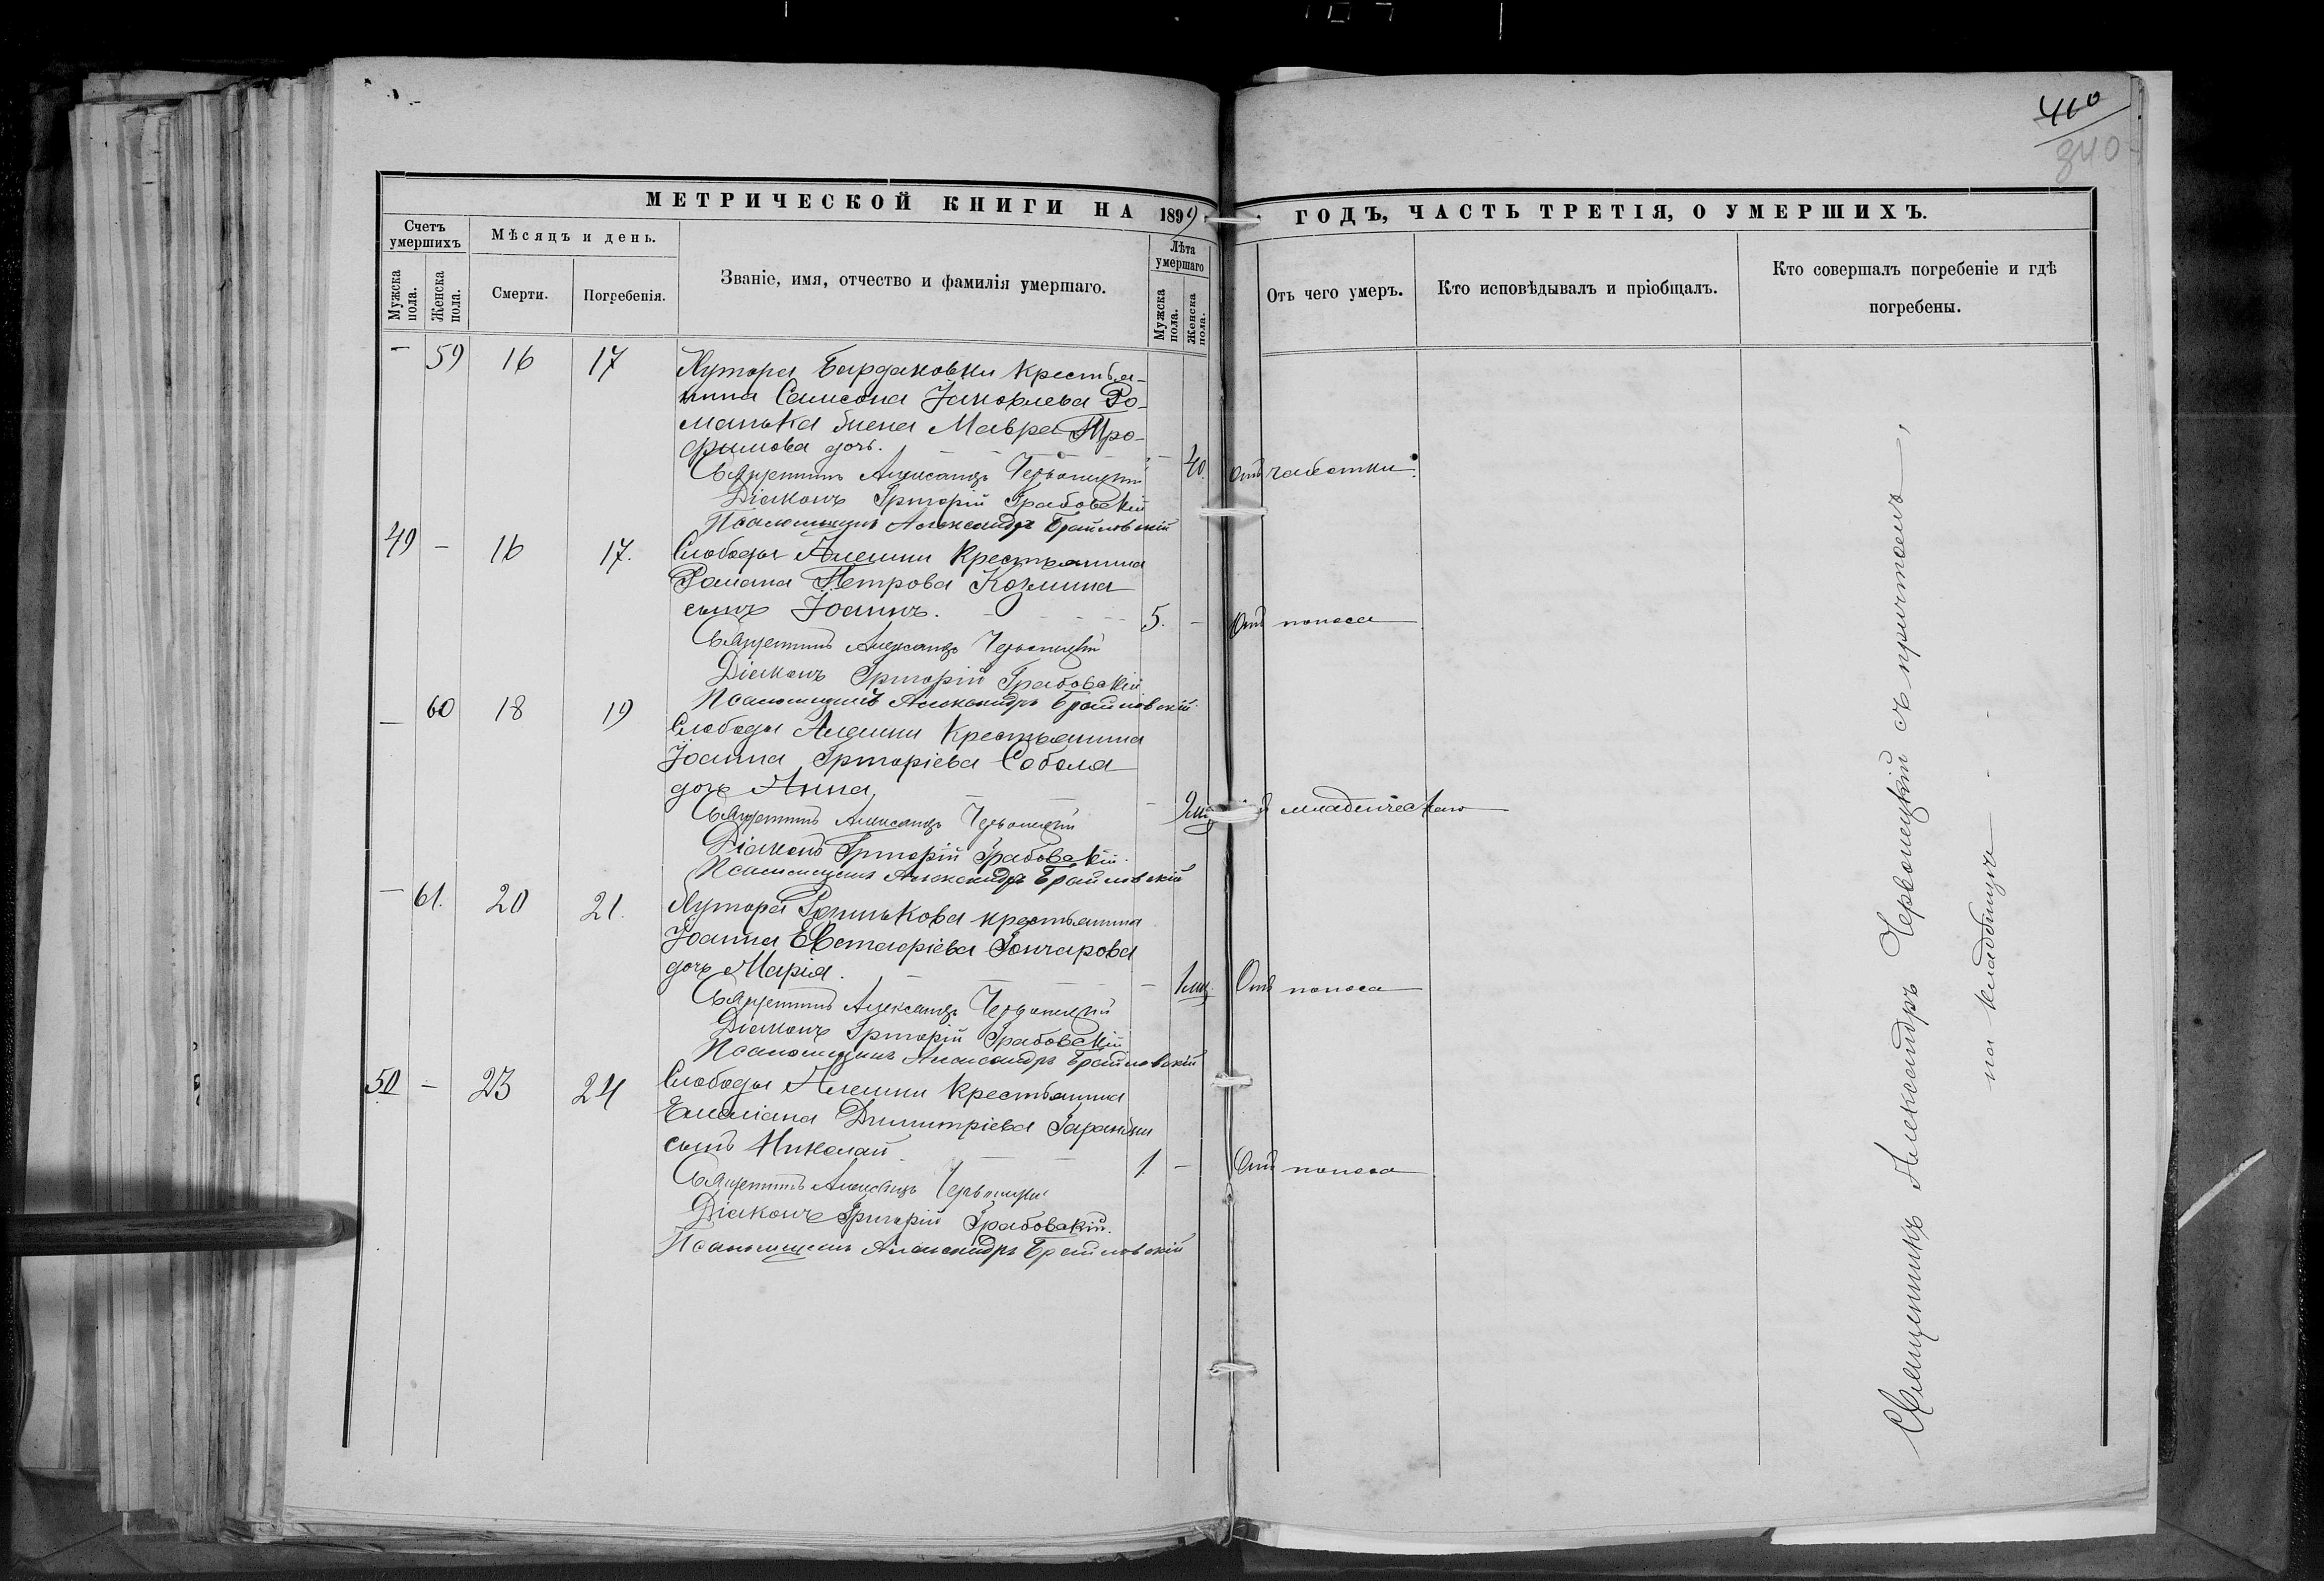 410
340
МЕТРИЧЕСКОЙ КНИГИ НА 1899 ГОДЪ, ЧАСТЬ ТРЕТІЯ, О УМЕРШИХЪ.
Счетъ умершихъ
Мѣсяцъ и день.
Званіе, имя, отчество и фамилія умершаго.
Лѣта умершаго
Отъ чего умеръ.
Кто исповѣдывалъ и пріобщалъ.
Кто совершалъ погребеніе и гдѣ погребены.
Мужска пола.
Женска пола.
Смерти.
Погребенія.
Мужска пола.
Женска пола.
— 59 16 17 Хутора Бардаковки крестья-
нина Самсона Іаковлева Ро-
манька жена Мавра Тро-
фимова дочь. — 40. Отъ чахотки.
Священникъ Александръ Червонецкій
Діаконъ Григорій Грабовскій
Псаломщикъ Александръ Браиловскій
49 — 16 17. Слободы Алешни крестьянина
Романа Петрова Козмина
сынъ Іоаннъ. 5. — Отъ поноса
Священникъ Александръ Червонецкій
Діаконъ Григорій Грабовскій
Псаломщикъ Александръ Браиловскій
— 60 18 19 Слободы Алешни крестьянина
Іоанна Григоріева Соболя
дочь Анна, — младенческаго
Священникъ Александръ Червонецкій
Діаконъ Григорій Грабовскій
Псаломщикъ Александръ Браиловскій
— 61. 20 21. Хутора крестьянина
Іоанна Евстафіева Гончарова
дочь Марія. — 1 мѣс. Отъ поноса
Священникъ Александръ Червонецкій
Діаконъ Григорій Грабовскій
Псаломщикъ Александръ Браиловскій
50 — 23 24 Слободы Алешни крестьянина
Емиліана Димитріева
сынъ Николай 1. — Отъ поноса
Священникъ Александръ Червонецкій
Діаконъ Григорій Грабовскій.
Псаломщикъ Александръ Браиловскій
Священникъ Александръ Червонецкій съ причтомъ,
на кладбищѣ